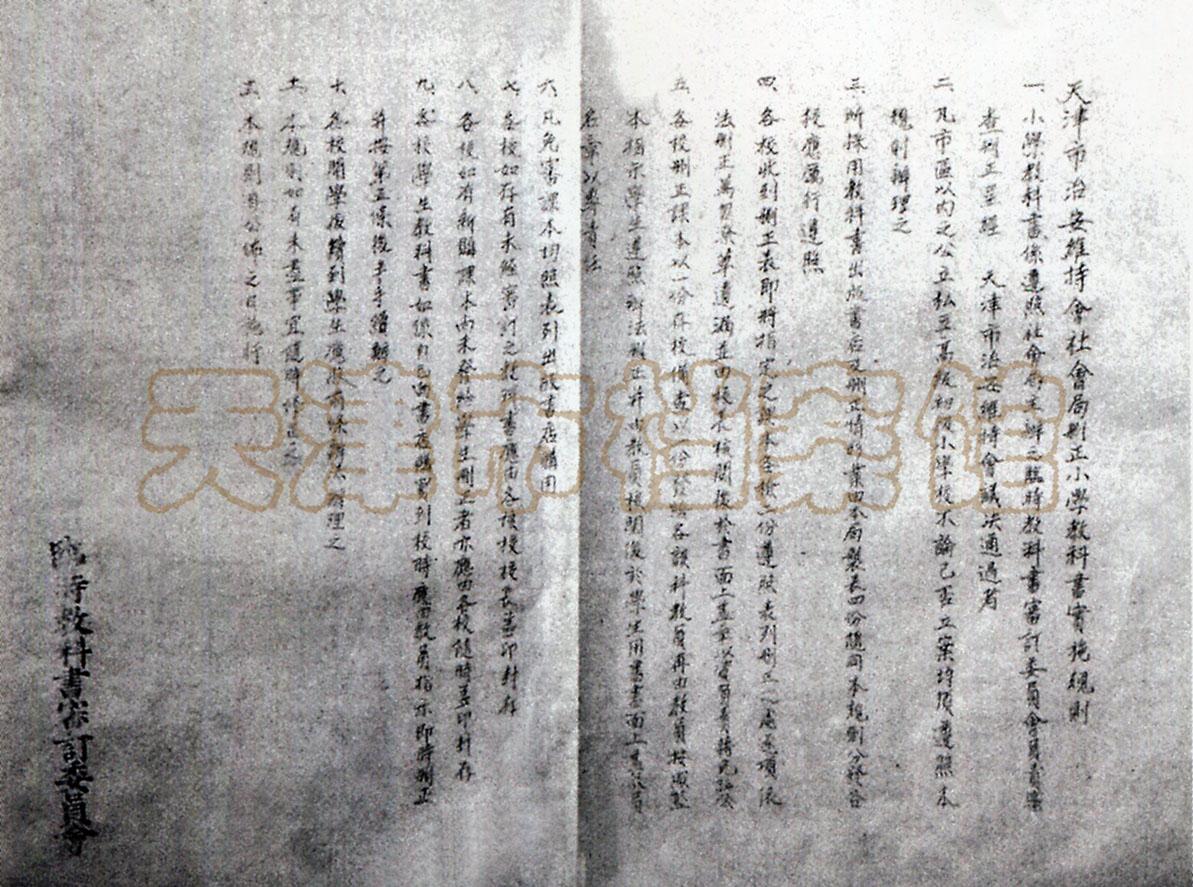 天津市治安維持會社會局刪正小學教科書實施規則
一、小學教科書係遵照社會局主辦之臨時教科書審訂委員會員責編
查刪正呈經 天津市治安維持會議決通過者
二、凡市區以內之公立私立高級初級小學校不論已否立案均須遵照本
規則辦理之
三、所採用教科書出版書店及刪正情形業由本局製表四份隨同本規則分發各
校應厲行遵照
四、各校收到刪正表即將指定之課本各檢二份遵照表列刪正之處逐項依
法刪正萬勿潦草遺漏並由校本校閱後於書面上蓋章以資負責
五、各校刪正課本以一份存校備查以一份發給各該科教員再由教員按照
本指示學生遵照辦法刪正并由教員校閱後於學生用書書面上蓋教員
名章以專責任
六、凡免審課本均照表列出版書店備用
七、各校如存有未經審訂之教科書應由各校校長蓋印封存
八、各校如有新購課本尚未發給學生刪正者亦應由各校隨時蓋印封存
九、各校學生教科書如係自己向書店購買到校時應由教員指示即時刪正
并按第五條後半手續辦之
十、各校開學後續到學生應依前條辦法辦理之
十一、本規則如有未盡事宜隨時修正之
十二、本規則自公佈之日施行
臨時教科書審訂委員會
天津市档案馆